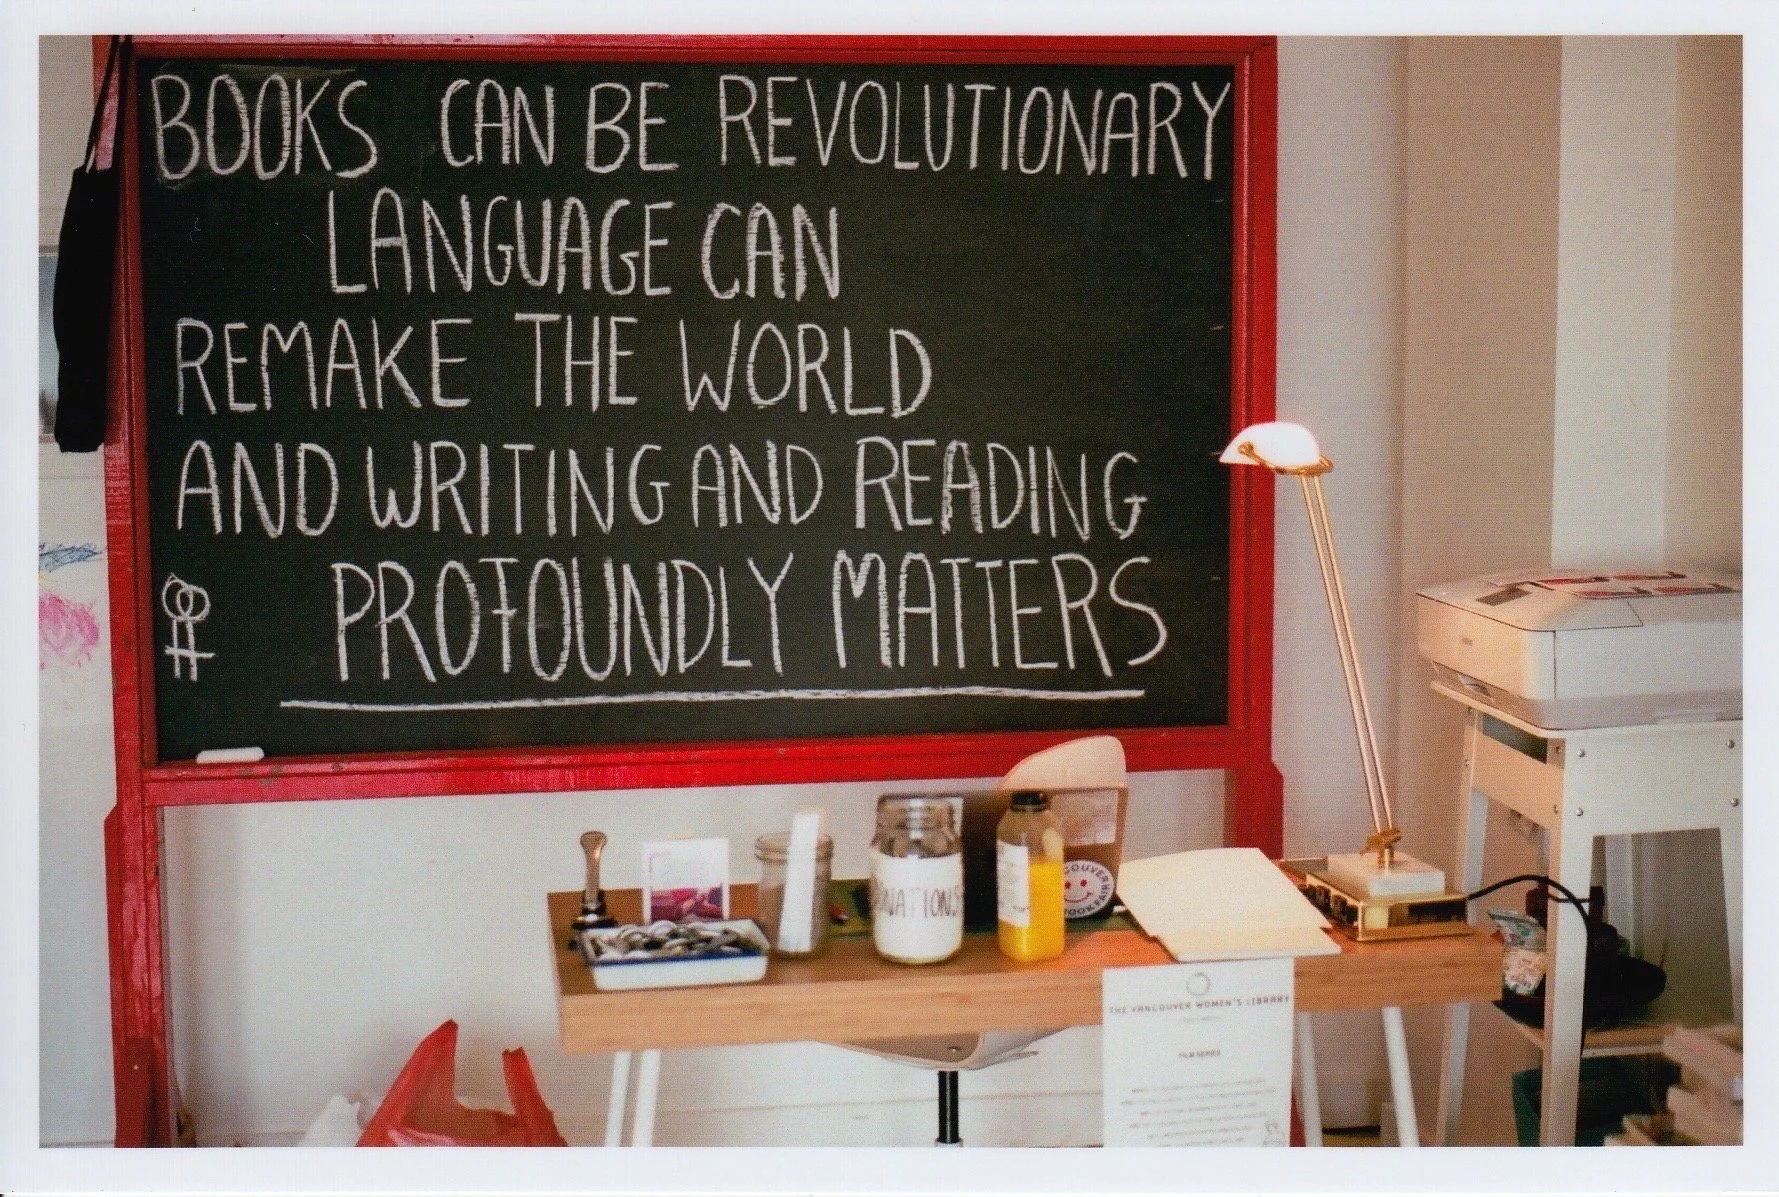 BOOKS CAN BE REVOLUTIONARY
LANGUAGE CAN
REMAKE THE WORLD
AND WRITING AND READING
PROFOUNDLY MATTERS
NATIONS
COUVER
OOKFAIR
THE VANCOUVER WOMEN'S LIBRARY
FILM SERIES